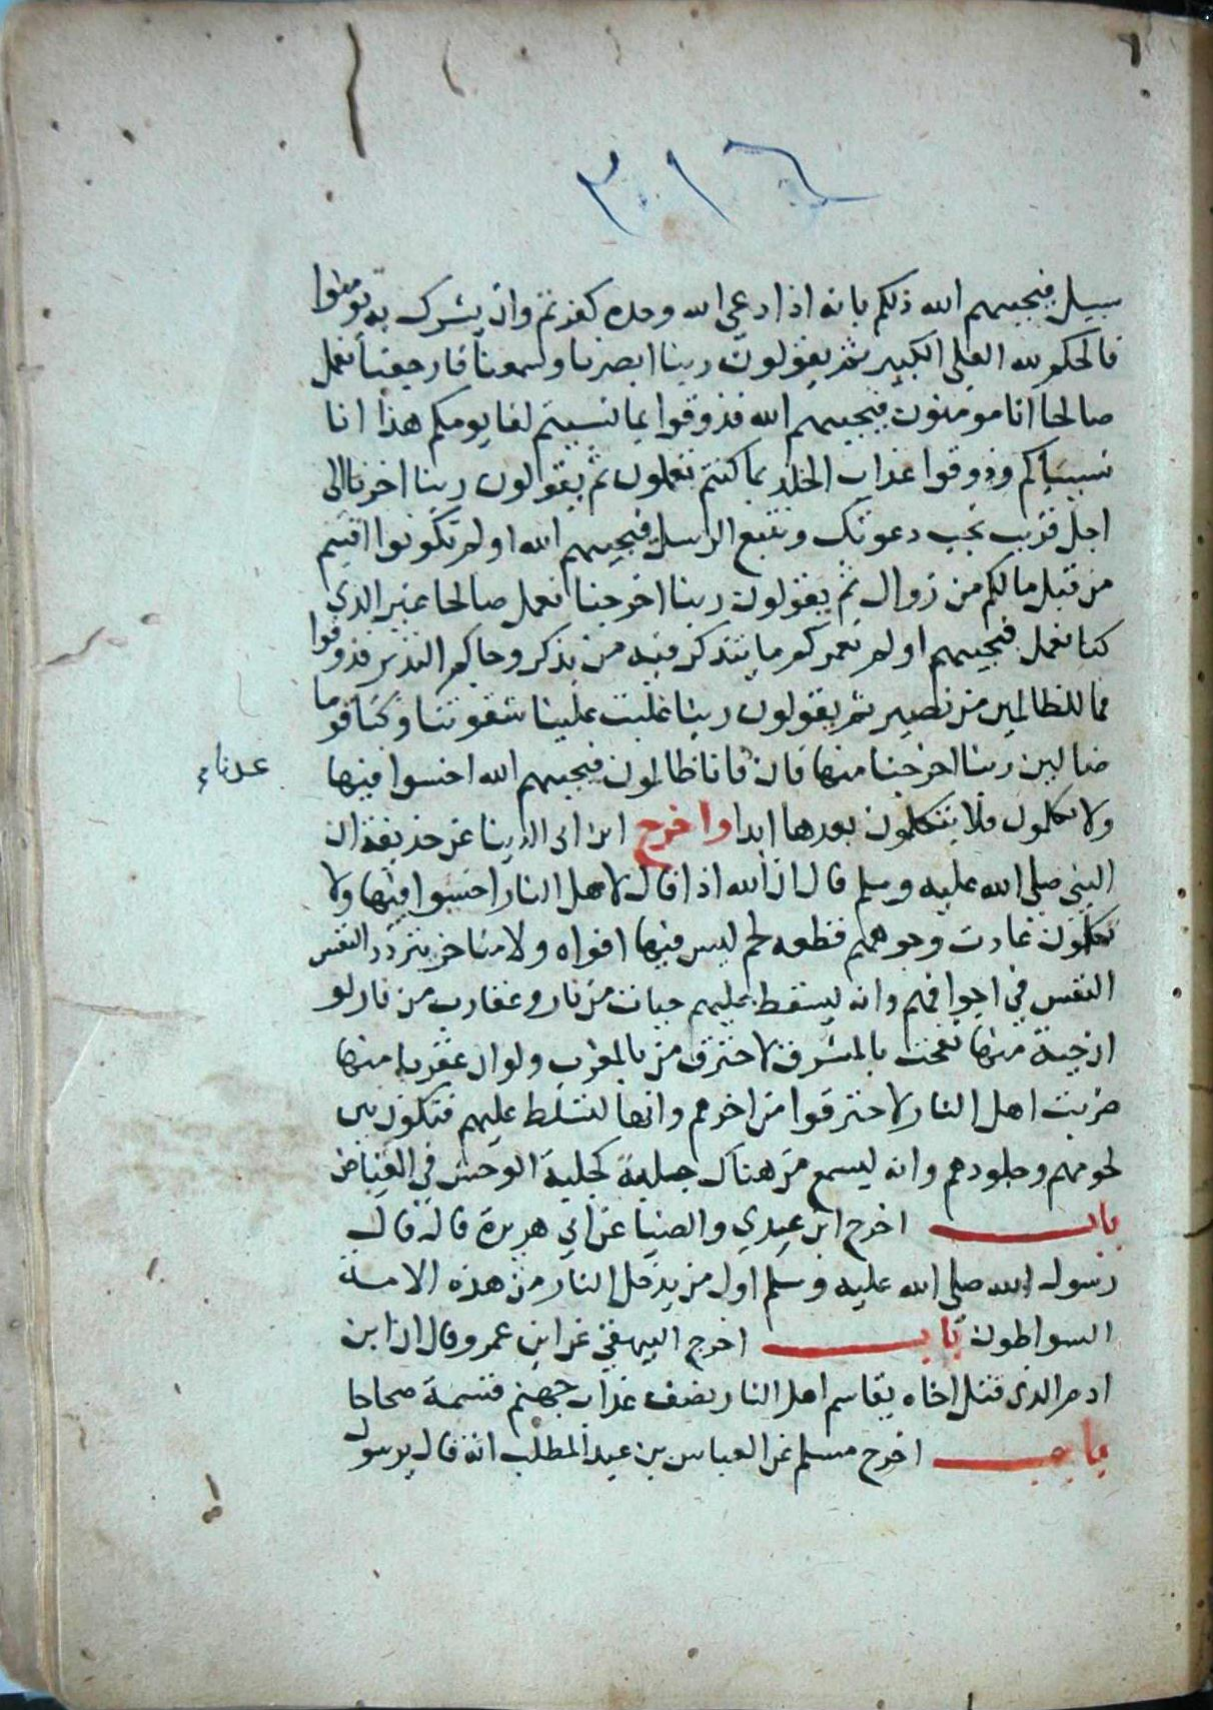 ٣١٦
سبيل فيجيبهم الله ذلكم بانه اذا دعي الله وحده كفرتم وان يشرك به تومنوا
فالحكم لله العلي الكبير ثم يقولون ربنا ابصرنا وسمعنا فارجعنا نعمل
صالحا انا مومنون فيجيبهم الله فذوقوا بما نسيتم لقا يومكم هذا انا
نسيناكم وذوقوا عذاب الخلد بما كنتم تعملون ثم يقولون ربنا اخرنا الى
اجل قريب نجب دعوتك ونتبع الرسل فيجيبهم الله اولم تكونوا اقسمتم
من قبل مالكم من زوال ثم يقولون ربنا اخرجنا نعمل صالحا غير الذي
كنا نعمل فيجيبهم اولم نعمركم ما يتذكر فيه من تذكر وجاكم النذير فذوقوا
فما للظالمين من نصير ثم يقولون ربنا غلبت علينا شقوتنا وكنا قوما
ضالين ربنا اخرجنا منها فان فانا ظالمون فيجيبهم الله اخسوا فيها
عدنا
ولا تكلمون فلا يتكلمون بعدها ابدا واخرج ابن ابي الدنيا عن حذيفة ان
النبي صلى الله عليه وسلم قال ان الله اذا قال لاهل النار اخسوا فيها ولا
تكلمون عادت وجوههم قطعه لحم ليس فيها افواه ولا مناخر يتردد النفس
النفس في اجوافهم وانه ليسقط عليهم حيات من نار وعقارب من نار لو
ان حية منها نفخت بالمشرق لاحترق من بالمغرب ولو ان عقربا منها
ضربت اهل النار لاحترقوا من اخرهم وانها لتسلط عليهم فتكون بين
لحومهم وجلودهم وانه ليسمع من هناك جلبة كجلبة الوحش في الغياض
باب اخرج ابن عدي والضيا عن ابي هريرة قال قال
رسول الله صلى الله عليه وسلم اول من يدخل النار من هذه الامة
السواطون باب اخرج البيهقي عن ابن عمرو قال ان ابن
ادم الذي قتل اخاه يقاسم اهل النار نصف عذاب جهنم قسمة صحاحا
باب اخرج مسلم عن العباس بن عبد المطلب انه قال يرسول